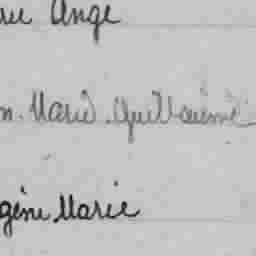 au Ange
n. Marie. Guillaume
gène Marie